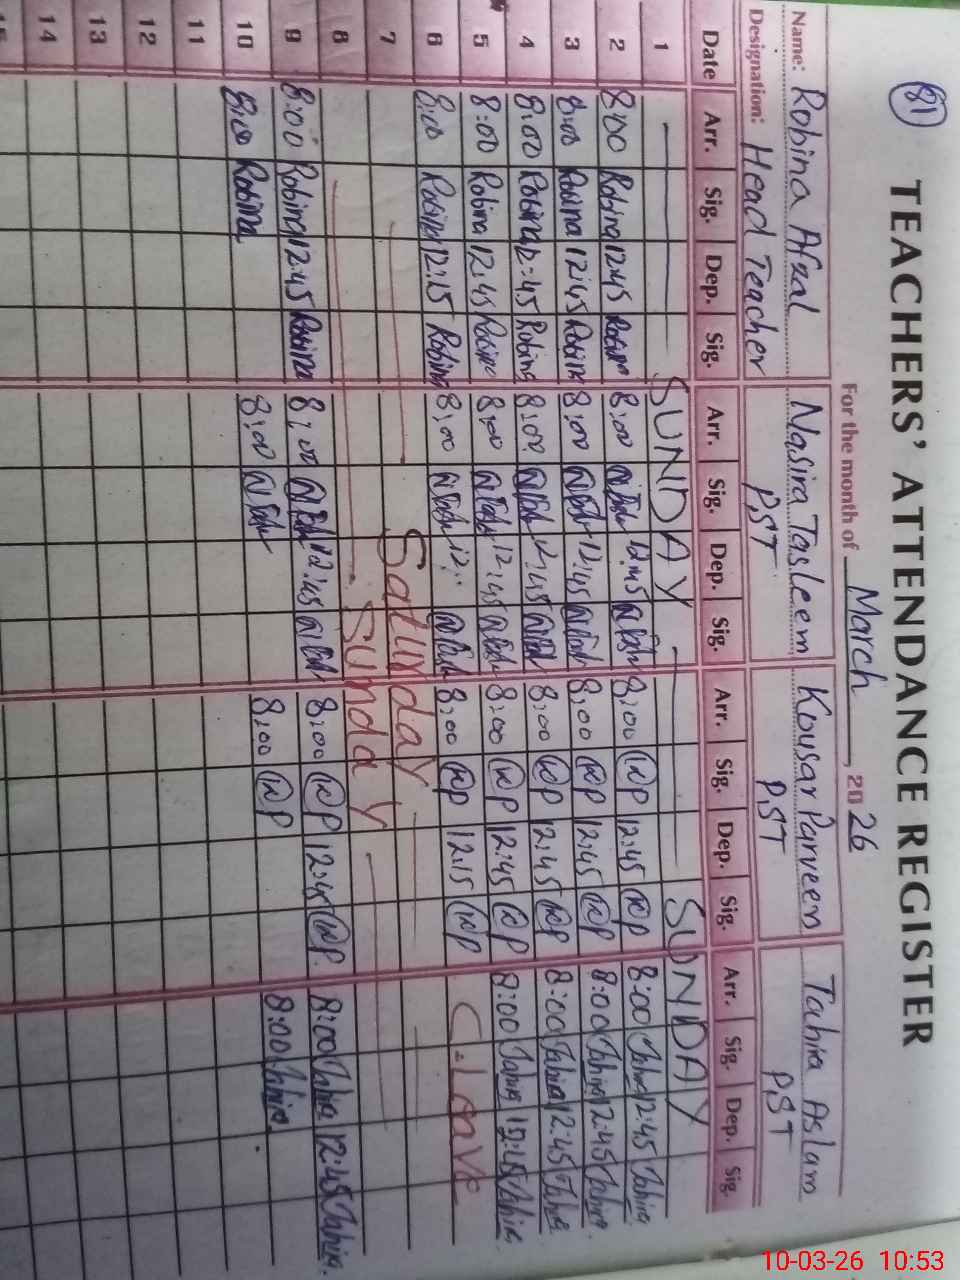 81
TEACHERS' ATTENDANCE REGISTER
For the month of March 2026
Name: Robina Afzal Nasira Tasleem Kousar Parveen Tahira Aslam
Designation: Head Teacher P.ST P.ST P.ST
Date Arr. Sig. Dep. Sig. Arr. Sig. Dep. Sig. Arr. Sig. Dep. Sig. Arr. Sig. Dep. Sig.
1 SUNDAY SUNDAY
2 8:00 Robina 12:45 Robina 8:00 12:45 8:00 KP 12:45 KP 8:00 Tahira 12:45 Tahira
3 8:00 Robina 12:45 Robina 8:00 12:45 8:00 KP 12:45 KP 8:00 Tahira 12:45 Tahira
4 8:00 Robina 12:45 Robina 8:00 12:45 8:00 KP 12:45 KP 8:00 Tahira 12:45 Tahira
5 8:00 Robina 12:45 Robina 8:00 12:45 8:00 KP 12:45 KP 8:00 Tahira 12:45 Tahira
6 8:00 Robina 12:15 Robina 8:00 8:00 KP 12:15 KP C-Leave
7 Saturday
8 Sunday
9 8:00 Robina 12:45 Robina 8:00 12:45 8:00 KP 12:45 KP. 8:00 Tahira 12:45 Tahira.
10 8:00 Robina 8:00 8:00 KP 8:00 Tahira
11
12
13
14
15
10-03-26 10:53